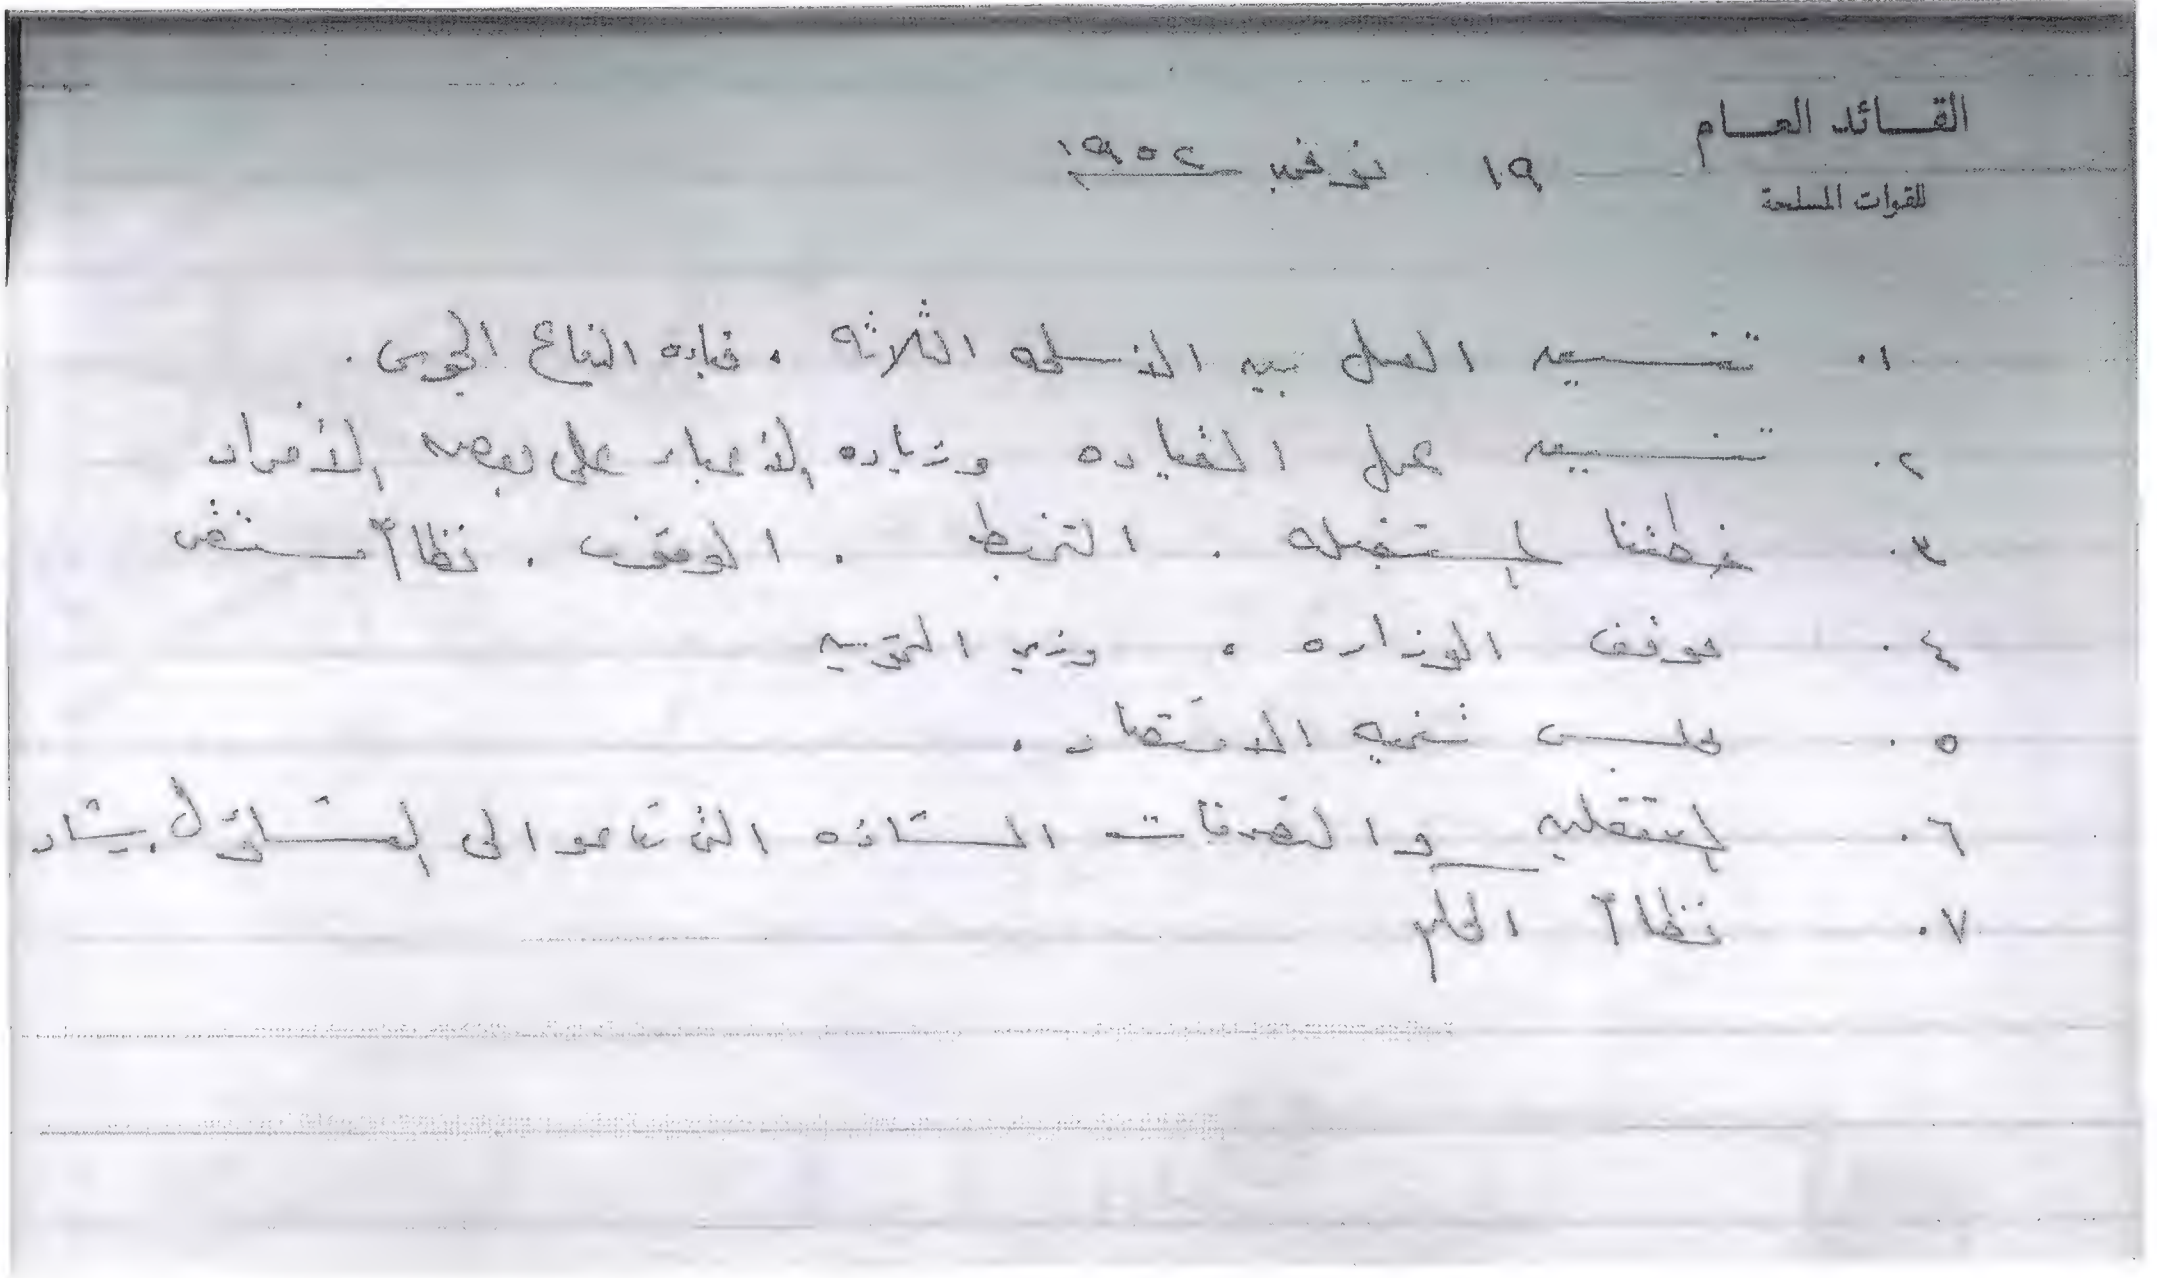 القائد العام
للقوات المسلحة
١٩ نوفمبر ١٩٥٢
١. تنسيق العمل بين الأسلحه الثلاثه . قياده الدفاع الجوى .
٢. تنسيق عمل القياده وزياده الأعباء على بعض الأفراد
٣. خططنا المستقبله . . الموقف . نظام مستقر
٤. موقف الوزاره . وزير التموين
٥. مجلس تنميه الاقتصاد .
٦. المعتقلين والتصرفات الشاذه التى تدعو الى
٧. نظام الحكم